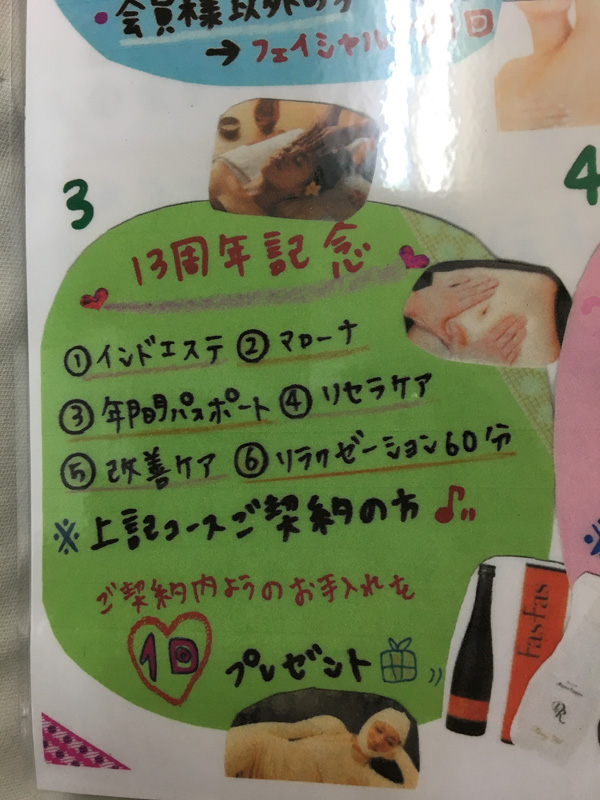 ・会員様以外の方
→フェイシャル 1回
3
4
13周年記念
①インドエステ ②マローナ
③年間パスポート ④リセラケア
⑤改善ケア ⑥リラクゼーション60分
※上記コースご契約の方♪
ご契約内ようのお手入れを
1回 プレゼント
fastas
※